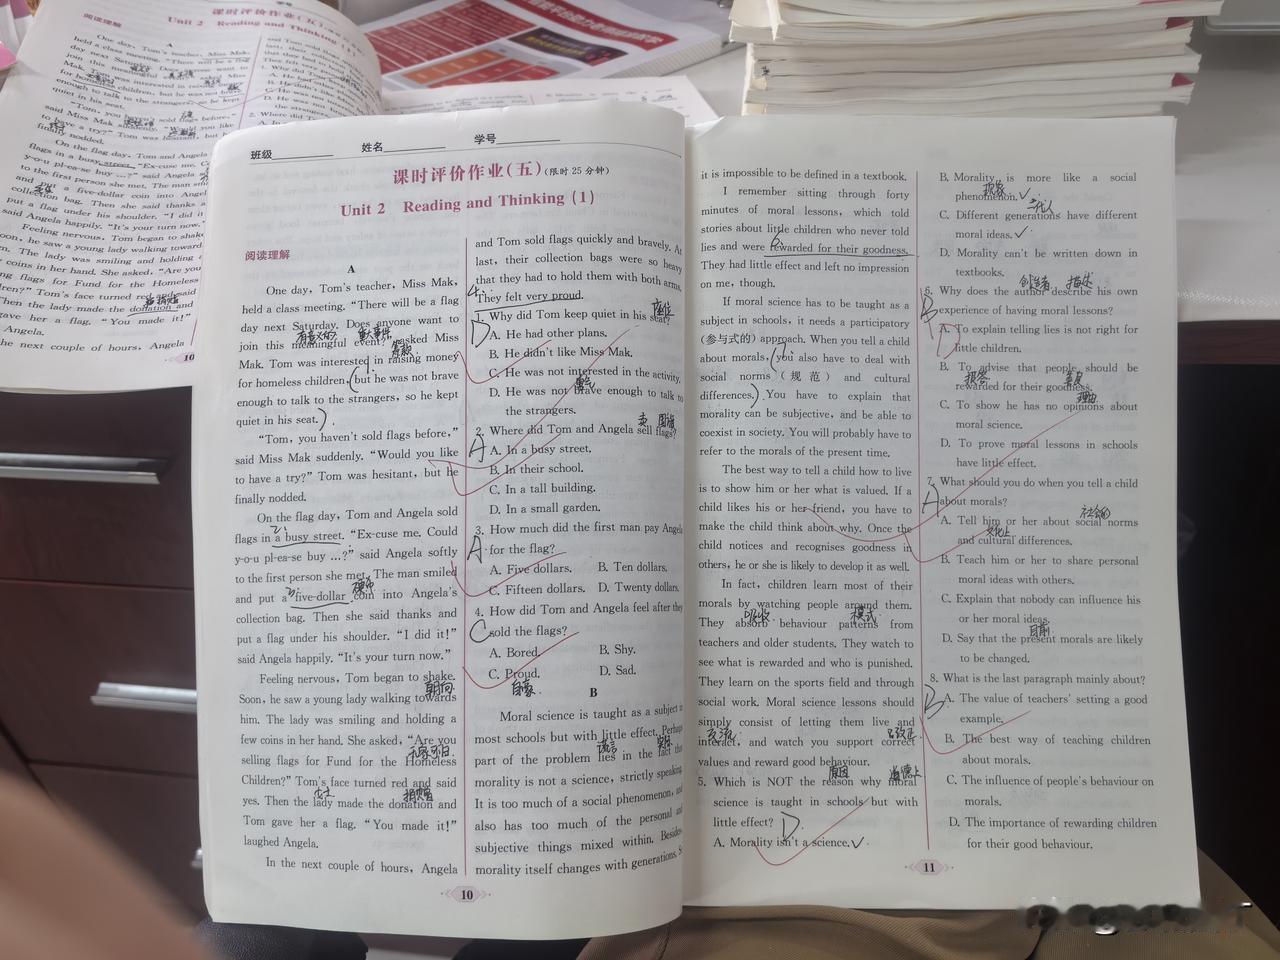 班级 姓名 学号
课时评价作业(五)(限时25分钟)
Unit 2 Reading and Thinking (1)
阅读理解
A
One day, Tom's teacher, Miss Mak,
held a class meeting. "There will be a flag
day next Saturday. Does anyone want to
join this meaningful event?" asked Miss
Mak. Tom was interested in raising money
for homeless children, but he was not brave
enough to talk to the strangers, so he kept
quiet in his seat.
"Tom, you haven't sold flags before,"
said Miss Mak suddenly. "Would you like
to have a try?" Tom was hesitant, but he
finally nodded.
On the flag day, Tom and Angela sold
flags in a busy street. "Ex-cuse me. Could
y-o-u pl-ea-se buy ...?" said Angela softly
to the first person she met. The man smiled
and put a five-dollar coin into Angela's
collection bag. Then she said thanks and
put a flag under his shoulder. "I did it!"
said Angela happily. "It's your turn now."
Feeling nervous, Tom began to shake.
Soon, he saw a young lady walking towards
him. The lady was smiling and holding a
few coins in her hand. She asked, "Are you
selling flags for Fund for the Homeless
Children?" Tom's face turned red and said
yes. Then the lady made the donation and
Tom gave her a flag. "You made it!"
laughed Angela.
In the next couple of hours, Angela
and Tom sold flags quickly and bravely. At
last, their collection bags were so heavy
that they had to hold them with both arms.
They felt very proud.
1. Why did Tom keep quiet in his seat?
座位
D
A. He had other plans.
B. He didn't like Miss Mak.
C. He was not interested in the activity.
D. He was not brave enough to talk to
the strangers.
2. Where did Tom and Angela sell flags?
A
A. In a busy street.
B. In their school.
C. In a tall building.
D. In a small garden.
3. How much did the first man pay Angela
A
for the flag?
A. Five dollars. B. Ten dollars.
C. Fifteen dollars. D. Twenty dollars.
4. How did Tom and Angela feel after they
C
sold the flags?
A. Bored. B. Shy.
C. Proud. D. Sad.
自豪
B
Moral science is taught as a subject in
most schools but with little effect. Perhaps
part of the problem lies in the fact that
morality is not a science, strictly speaking.
It is too much of a social phenomenon, and
also has too much of the personal and
subjective things mixed within. Besides,
morality itself changes with generations. So
10
it is impossible to be defined in a textbook.
I remember sitting through forty
minutes of moral lessons, which told
stories about little children who never told
lies and were rewarded for their goodness.
They had little effect and left no impression
on me, though.
If moral science has to be taught as a
subject in schools, it needs a participatory
(参与式的) approach. When you tell a child
about morals, you also have to deal with
social norms (规范) and cultural
differences. You have to explain that
morality can be subjective, and be able to
coexist in society. You will probably have to
refer to the morals of the present time.
The best way to tell a child how to live
is to show him or her what is valued. If a
child likes his or her friend, you have to
make the child think about why. Once the
child notices and recognises goodness in
others, he or she is likely to develop it as well.
In fact, children learn most of their
morals by watching people around them.
吸收 模式
They absorb behaviour patterns from
teachers and older students. They watch to
see what is rewarded and who is punished.
They learn on the sports field and through
social work. Moral science lessons should
simply consist of letting them live and
interact, and watch you support correct
values and reward good behaviour.
原因 道德上
5. Which is NOT the reason why moral
science is taught in schools but with
little effect? D
A. Morality isn't a science. ✓
B. Morality is more like a social
phenomenon. ✓
现象
C. Different generations have different
moral ideas. ✓
D. Morality can't be written down in
textbooks.
创造者 描述
6. Why does the author describe his own
experience of having moral lessons?
A. To explain telling lies is not right for
little children.
B. To advise that people should be
rewarded for their goodness.
理由
C. To show he has no opinions about
moral science.
D. To prove moral lessons in schools
have little effect.
7. What should you do when you tell a child
A
about morals?
社会的
A. Tell him or her about social norms
文化上
and cultural differences.
B. Teach him or her to share personal
moral ideas with others.
C. Explain that nobody can influence his
or her moral ideas.
目前
D. Say that the present morals are likely
to be changed.
8. What is the last paragraph mainly about?
B
A. The value of teachers' setting a good
example.
B. The best way of teaching children
about morals.
C. The influence of people's behaviour on
morals.
D. The importance of rewarding children
for their good behaviour.
11